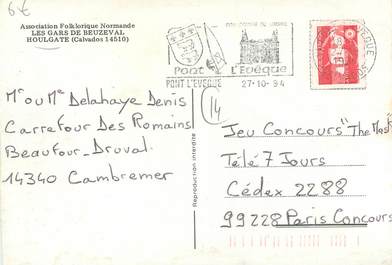 6€
Association Folklorique Normande
LES GARS DE BEUZEVAL
HOULGATE (Calvados 14510)
Pont L'Evêque
PONT L'EVEQUE 27-10-94
14
Mr ou Me Delahaye Denis
Carrefour Des Romains
Beaufour_Druval
14340 Cambremer
Reproduction interdite
Jeu Concours "The Mask"
Télé 7 Jours
Cédex 2288
99228 Paris Concours